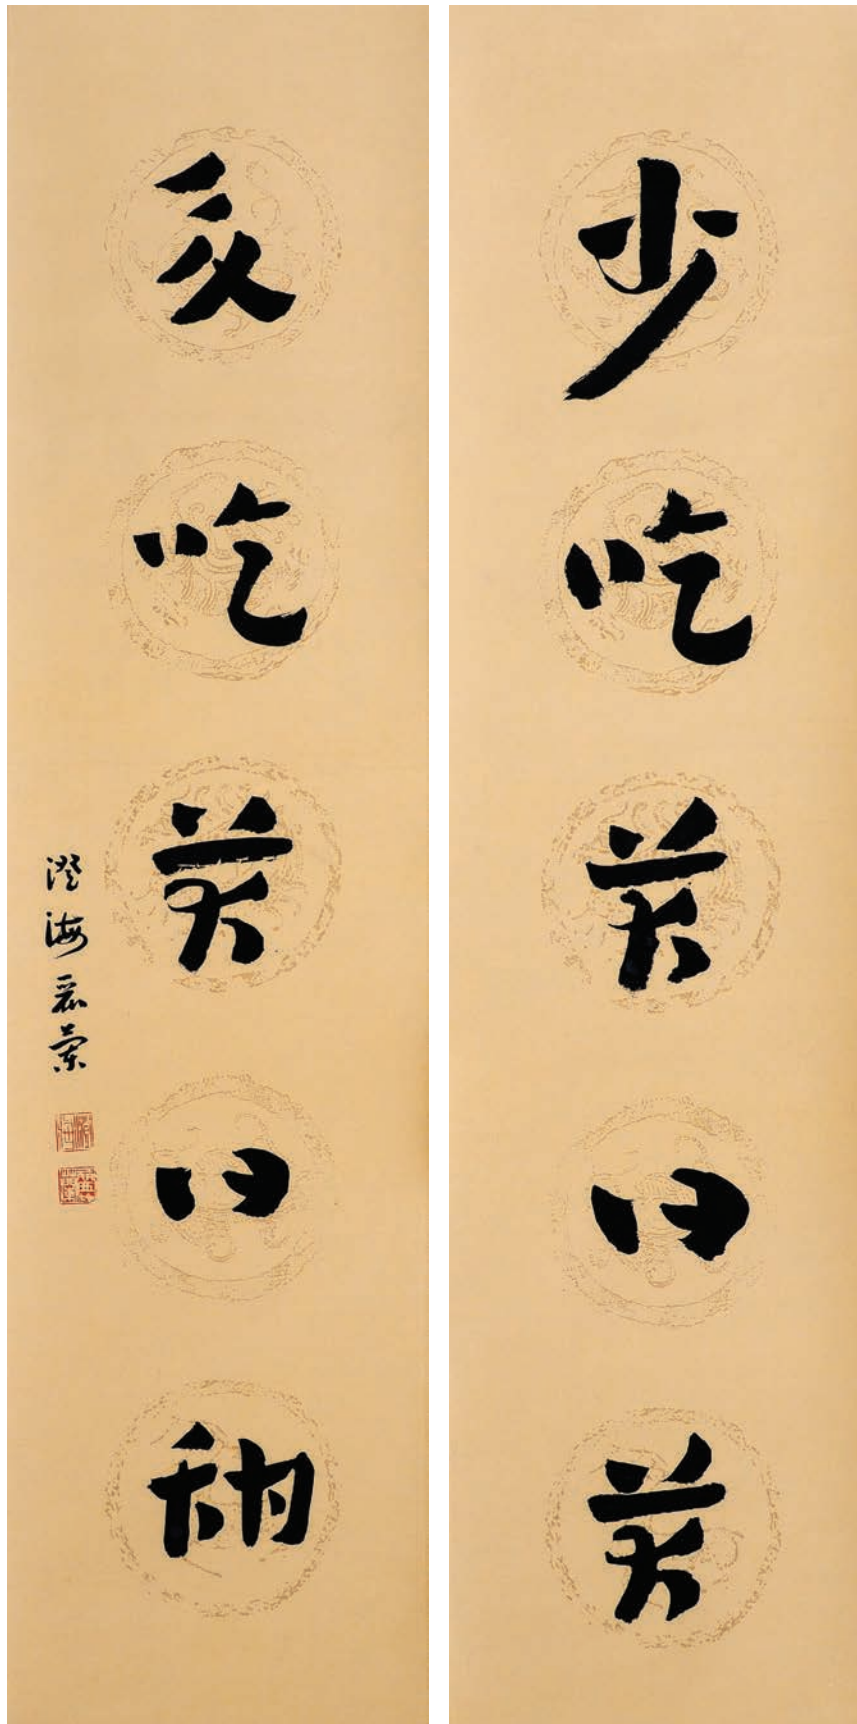 少吃苦口苦
多吃苦口甜
澄海